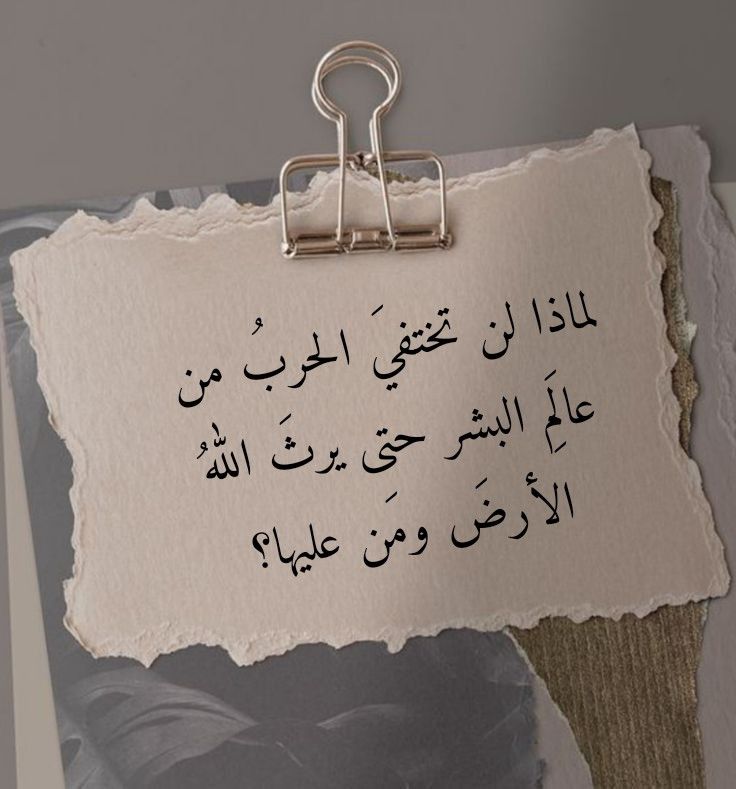 لماذا لن تختفيَ الحربُ من
عالَمِ البشر حتى يرثَ اللهُ
الأرضَ ومَن عليها؟